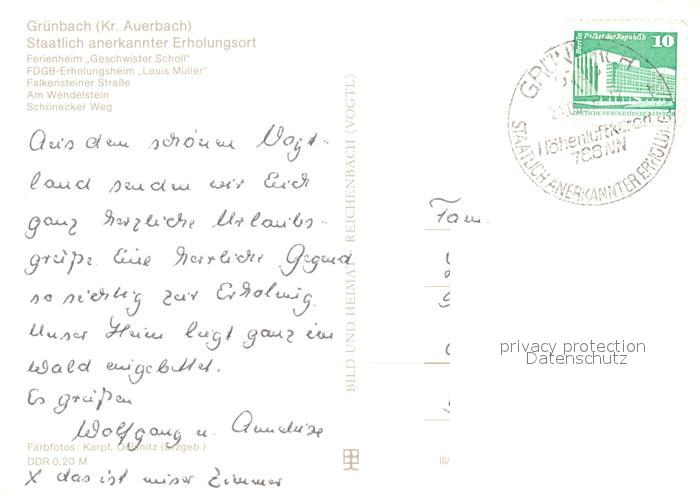 Grünbach (Kr. Auerbach)
Staatlich anerkannter Erholungsort
Ferienheim „Geschwister Scholl"
FDGB-Erholungsheim „Louis Müller"
Falkensteiner Straße
Am Wendelstein
Schönecker Weg
Aus dem schönen Vogt-
land senden wir Euch
ganz herzliche Urlaubs-
grüße. Eine herrliche Gegend
so richtig zur Erholung.
Unser Heim liegt ganz im
Wald eingebettet.
Es grüßen
Wolfgang u. Anneliese
Farbfotos: Karpf, Oelsnitz (Erzgeb.)
DDR 0,20 M
X das ist unser Zimmer
BILD UND HEIMAT REICHENBACH (VOGTL)
III/
Fam.
Berlin Palast der Republik 10
DEUTSCHE DEMOKRATISCHE REPUBLIK
Höhenluftkurort
788 NN
STAATLICH ANERKANNTER ERHOLUNGSORT
privacy protection
Datenschutz